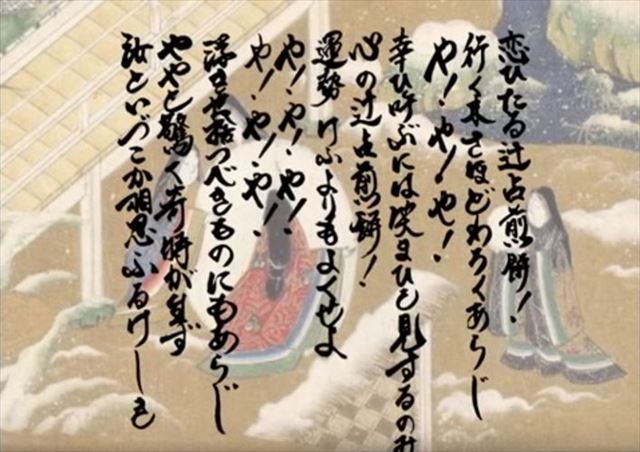 恋ひたる辻占煎餅!
行く末さほどわろくあらじ
や!や!や!
幸ひ呼ぶには笑まひを見するのみ
心の辻占煎餅!
運勢 けふよりもよくせよ
や!や!や!
や!や!や!
浮き世捨つべきものにもあらじ
ややと驚く奇特が生ず
汝といづこか相思ふるけしき